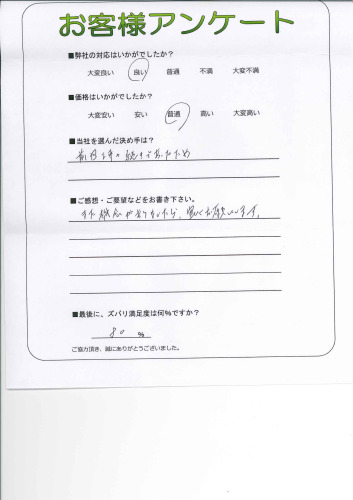 お客様アンケート
■弊社の対応はいかがでしたか？
大変良い 良い 普通 不満 大変不満
■価格はいかがでしたか？
大変安い 安い 普通 高い 大変高い
■当社を選んだ決め手は？
前回
■ご感想・ご要望などをお書き下さい。
また機会がありましたら、宜しくお願いします。
■最後に、ズバリ満足度は何％ですか？
80 ％
ご協力頂き、誠にありがとうございました。